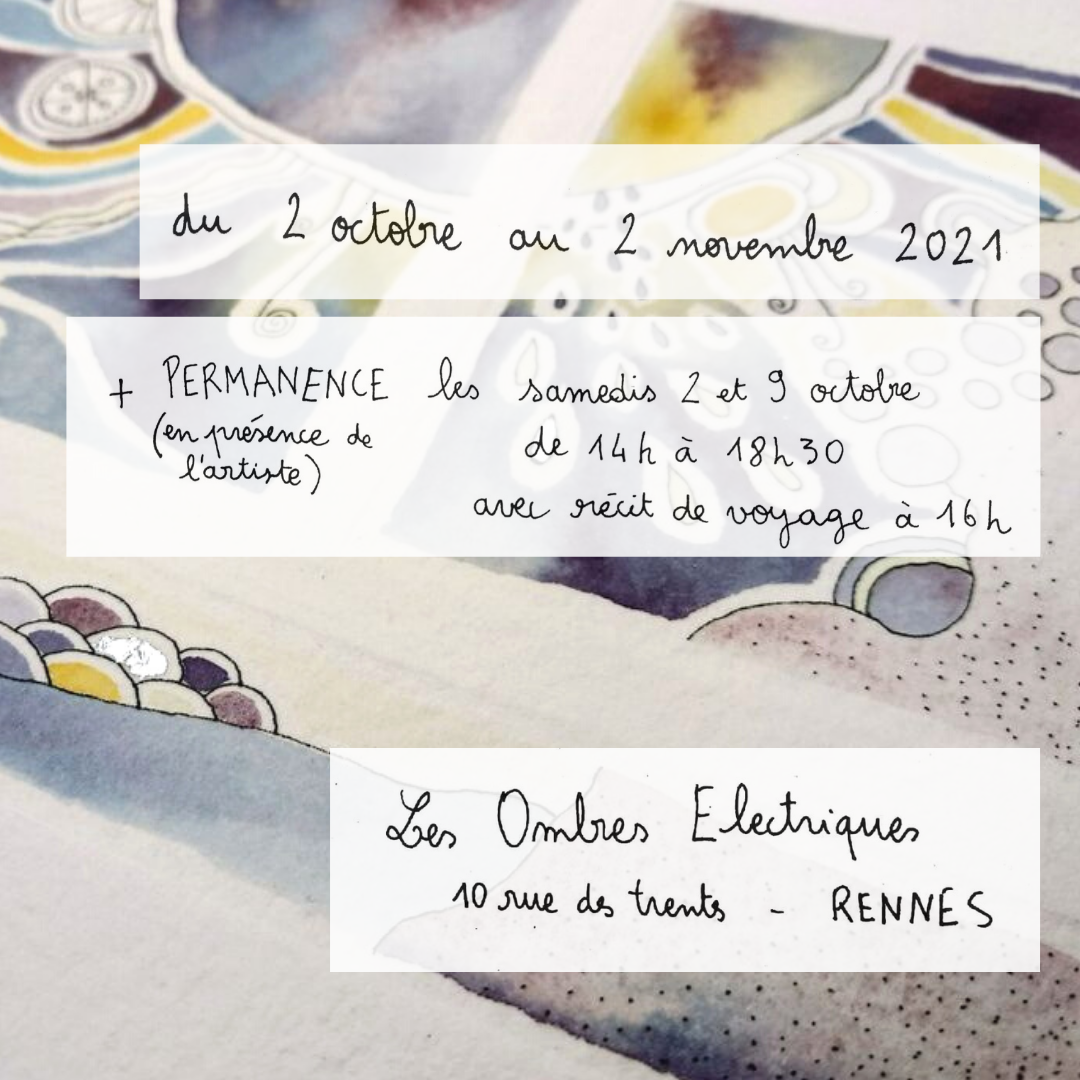 du 2 octobre au 2 novembre 2021
+ PERMANENCE les samedis 2 et 9 octobre
(en présence de l'artiste)
de 14h à 18h30
avec récit de voyage à 16h
Les Ombres Electriques
10 rue des trents - RENNES